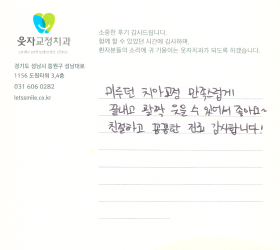 웃자교정치과
smile orthodontic clinic
경기도 성남시 중원구 성남대로
1156 도원타워 3,4층
031 606 0282
letssmile.co.kr
소중한 후기 감사드립니다.
함께 할 수 있었던 시간에 감사하며,
환자분들의 소리에 귀 기울이는 웃자치과가 되도록 하겠습니다.
미루던 치아교정 만족스럽게
끝내고 활짝 웃을 수 있어서 좋아요~
친절하고 꼼꼼한 진료 감사합니다!